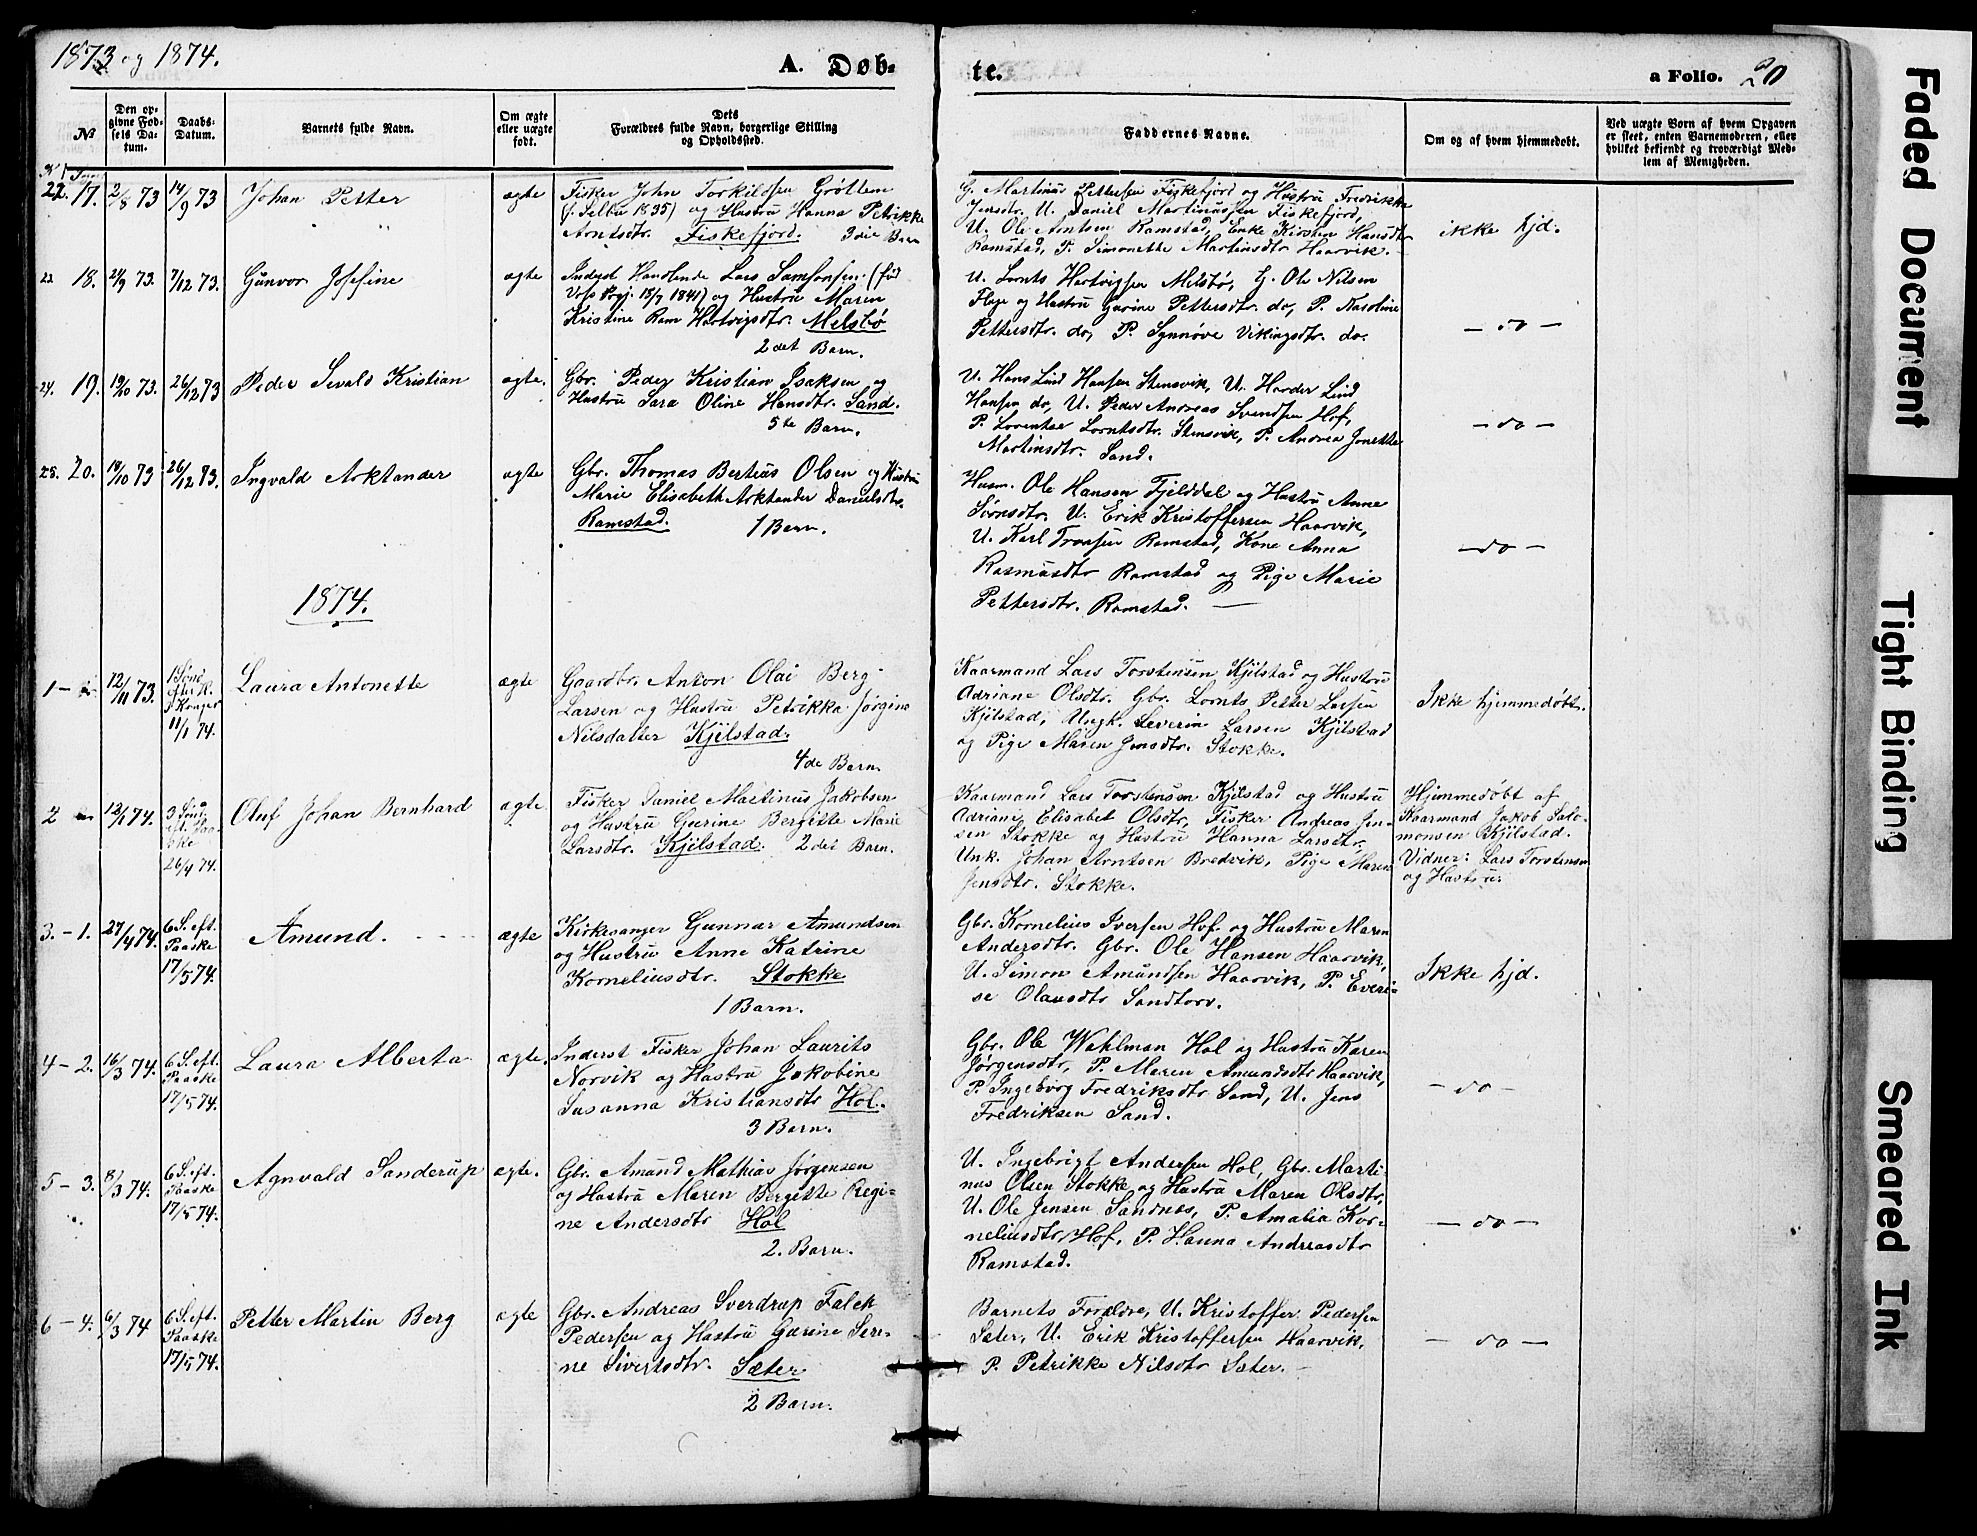 1873 og 1874.
A. Døb-
te.
a Folio. 20
№
Den op-
givne Fød-
sels Da-
tum.
Daabs-
Datum.
Varnets fulde Navn.
Om ægte
eller uægte
født.
Dets
Forældres fulde Navn, borgerlige Stilling
og Opholdssted.
Faddernes Navne.
Om og af hvem hjemmedøbt.
Ved uægte Børn af hvem Opgaven
er skeet, enten Barnemoderen, eller
hvilket bekjendt og troværdigt Med-
lem af Menigheden.
22. 17. 2/8 73 14/9 73 Johan Petter ægte
Fisker John Torkildsen Grøttem
(f. Selbu 1835) og Hustru Hanna Petrikke
Arntsdtr. Fiskefjord. 3die Barn
G. Martinus Pettersen Fiskefjord og Hustru Fredrikke
Jensdtr. U. Daniel Martinussen Fiskefjord,
U. Ole Arntsen Ramstad, Enke Kirsten Hansdtr
Ramstad, P. Simonette Martinsdtr Haarvik.
ikke hjd.
18. 24/9 73. 7/12 73. Gunvor Josefine ægte
Inderst Handlende Lars Samsonsen (fød
Vos Prgj. 13/7 1841) og Hustru Maren
Kristine Ram Hartvigsdtr. Melsbø
2det Barn.
U. Lornts Hartvigsen Melsbø, G. Ole Nilsen
Fleje og Hustru Gurine Pettersdtr. do, P. Karoline
Pettersdtr. do, P. Synnøve Vikingsdtr. do.
- do -
24. 19. 19/10 73. 26/12 73 Peder Sevald Kristian ægte.
Gbr. Peder Kristian Isaksen og
Hustru Sara Oline Hansdtr. Sand.
5te Barn.
U. Hans Lind Hansen Stensvik, U. Harder Lind
Hansen do, U. Peder Andreas Svendsen Hof,
P. Lorentse Lorntsdtr. Stensvik, P. Andrea Jonette
Martinsdtr. Sand.
- do -
25. 20. 18/10 73 26/12 73. Ingvald Arktander ægte
Gbr. Thomas Berteus Olsen og Hustru
Marie Elisabeth Arktander Danielsdtr.
Ramstad. 1 Barn.
Husm. Ole Hansen Fjelddal og Hustru Anne
Sørensdtr. U. Erik Kristoffersen Haarvik,
U. Karl Traasen Ramstad, Kone Anna
Rasmusdtr Ramstad og Pige Marie
Pettersdtr. Ramstad. —
- do -
1874.
1 - 12/11 73. 1 Sønd
efter H.
3 Konger
11/1 74. Laura Antonette ægte
Gaardbr. Anton Olai Berg
Larsen og Hustru Petrikka Jørgine
Nilsdatter Kjilstad.
4de Barn.
Kaarmand Lars Torstensen Kjilstad og Hustru
Adriane Olsdtr. Gbr. Lornts Petter Larsen
Kjilstad, Ungk. Severin Larsen Kjilstad
og Pige Maren Jensdtr. Stokke.
Ikke hjemmedøbt.
2 12/1 74. 3 Sønd
eft. Paa-
ske
26/4 74. Oluf Johan Bernhard ægte
Fisker Daniel Martinus Jakobsen
og Hustru Gurine Bergitte Marie
Larsdtr. Kjilstad. 2det Barn.
Kaarmand Lars Torstensen Kjilstad og Hustru
Adriane Elisabet Olsdtr, Fisker Andreas Jen-
sen Stokke og Hustru Hanna Larsdtr,
Unk. Johan Arntsen Bredvik, Pige Maren
Jensdtr. Stokke.
Hjemmedøbt af
Kaarmand Jakob Salo-
monsen Kjilstad.
Vidner: Lars Torstensen
og Hustru.
3. - 1. 27/4 74. 6 S. eft.
Paaske
17/5 74. Amund. ægte
Kirkesanger Gunnar Amundsen
og Hustru Anne Katrine
Korneliusdtr. Stokke
1 Barn.
Gbr. Kornelius Iversen Hof og Hustru Maren
Andersdtr. Gbr. Ole Hansen Haarvik,
U. Simon Amundsen Haarvik, P. Everi-
se Olausdtr Sandtorv.
Ikke hjd.
4 - 2. 16/3 74. 6 S. eft.
Paaske
17/5 74. Laura Alberta ægte.
Inderst Fisker Johan Laurits
Norvik og Hustru Jakobine
Susanna Kristiansdtr Hol.
3 Barn.
Gbr. Ole Wahlman Hol og Hustru Karen
Jørgensdtr, P. Maren Amundsdtr Haarvik,
P. Ingeborg Fredriksdtr Sand, U. Jens
Fredriksen Sand.
- do -
5 - 3. 8/3 74. 6 S. eft.
Paaske
17/5 74. Agnvald Sanderup ægte.
Gbr. Amund Mathias Jørgensen
og Hustru Maren Bergitte Regi-
ne Andersdtr Hol
2. Barn.
U. Ingebrigt Andersen Hol, Gbr. Marti-
nus Olsen Stokke og Hustru Maren Olsdtr,
U. Ole Jensen Sandnes, P. Amalia Kor-
neliusdtr Hof, P. Hanna Andreasdtr
Ramstad.
- do -
6 - 4. 6/3 74 6 S. eft.
Paaske
17/5 74. Petter Martin Berg ægte
Gbr. Andreas Sverdrup Falck
Pedersen og Hustru Gurine Sere-
ne Sivertsdtr. Sæter
2 Barn.
Barnets Forældre, U. Kristoffer Pedersen
Sæter, U. Erik Kristoffersen Haarvik,
P. Petrikke Nilsdtr Sæter. -
- do -
Faded Document
Tight Binding
Smeared Ink